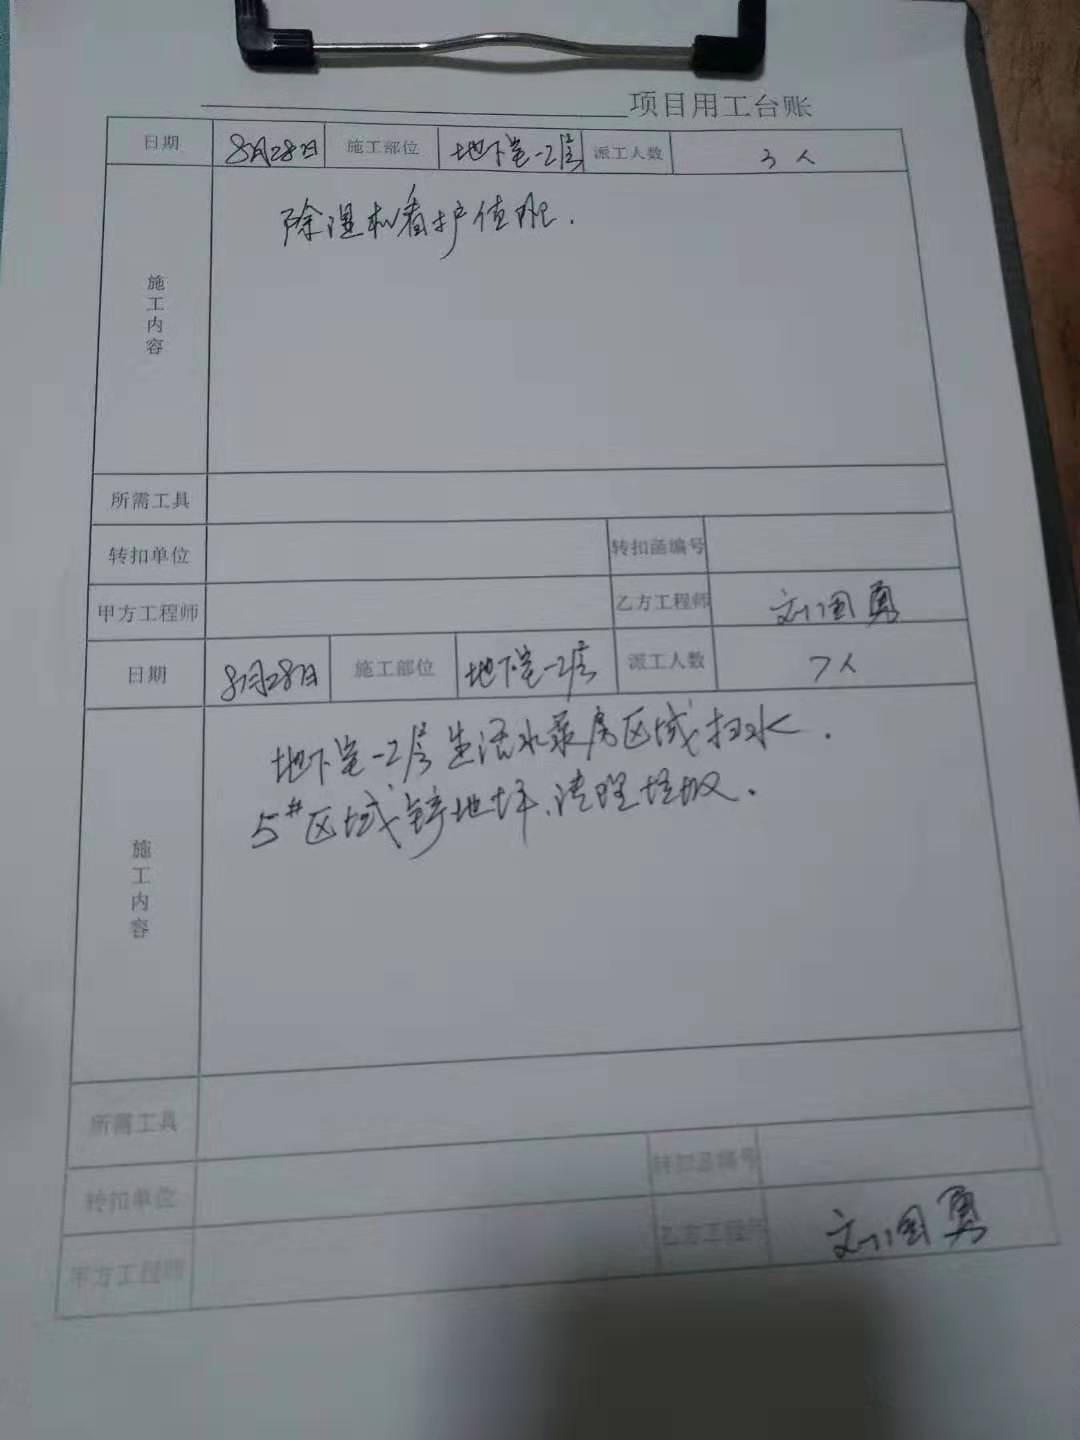 项目用工台账
日期 8月28日 施工部位 地下室-2层 派工人数 3人
施工内容 除湿机看护值班.
所需工具
转扣单位 转扣函编号
甲方工程师 乙方工程师 刘国勇
日期 8月28日 施工部位 地下室-2层 派工人数 7人
地下室-2层生活水泵房区域扫水.
施工内容 5#区域 地坪、清理垃圾.
所需工具
转扣单位 转扣函编号
甲方工程师 乙方工程师 刘国勇